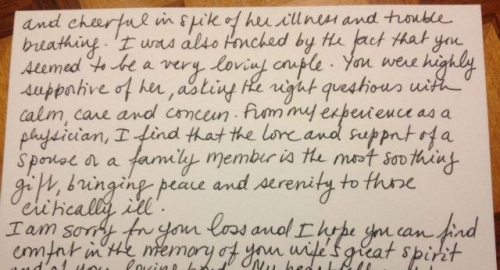 and cheerful in spite of her illness and trouble
breathing. I was also touched by the fact that you
seemed to be a very loving couple. You were highly
supportive of her, asking the right questions with
calm, care and concern. From my experience as a
physician, I find that the love and support of a
spouse or a family member is the most soothing
gift, bringing peace and serenity to those
critically ill.
I am sorry for your loss and I hope you can find
comfort in the memory of your wife's great spirit
and of your loving bond. My heart